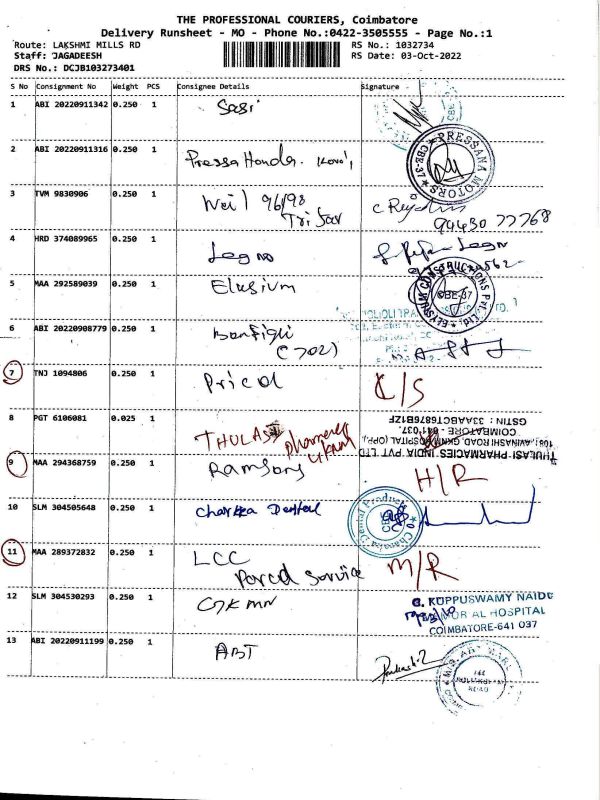 THE PROFESSIONAL COURIERS, Coimbatore
Delivery Runsheet - MO - Phone No.:0422-3505555 - Page No.:1
Route: LAKSHMI MILLS RD RS No.: 1032734
Staff: JAGADEESH RS Date: 03-Oct-2022
DRS No.: DCJB103273401
S No Consignment No Weight PCS Consignee Details Signature
1 ABI 20220911342 0.250 1 Sasi
2 ABI 20220911316 0.250 1 Pressa Honda.
PRESSANA MOTORS CBE-37
3 TVM 9830906 0.250 1 Neil 96/98
Tri Star
94430 77768
4 HRD 374089965 0.250 1 Legno Legno
5 MAA 292589039 0.250 1 Elusium
ELYSIUM CONSTRUCTIONS Pvt. Ltd. CBE-37
6 ABI 20220908779 0.250 1 Bonfigli
(702)
7 TNJ 1094806 0.250 1 Pricol C/S
8 PGT 6106081 0.025 1 THULASI Pharmacy
THULASI PHARMACIES INDIA PVT LTD
AVINASHI ROAD, GKNM HOSPITAL (OP),
COIMBATORE - 641 037.
GSTIN : 33AABCT6768B1ZF
9 MAA 294368759 0.250 1 Ramsons H/R
10 SLM 304505648 0.250 1 Charkka Dental
Dental Products CBE
11 MAA 289372832 0.250 1 LCC
Parcel Service M/R
12 SLM 304530293 0.250 1 GKMN
G. KUPPUSWAMY NAIDU
MEMORIAL HOSPITAL
COIMBATORE-641 037
13 ABI 20220911199 0.250 1 ABT